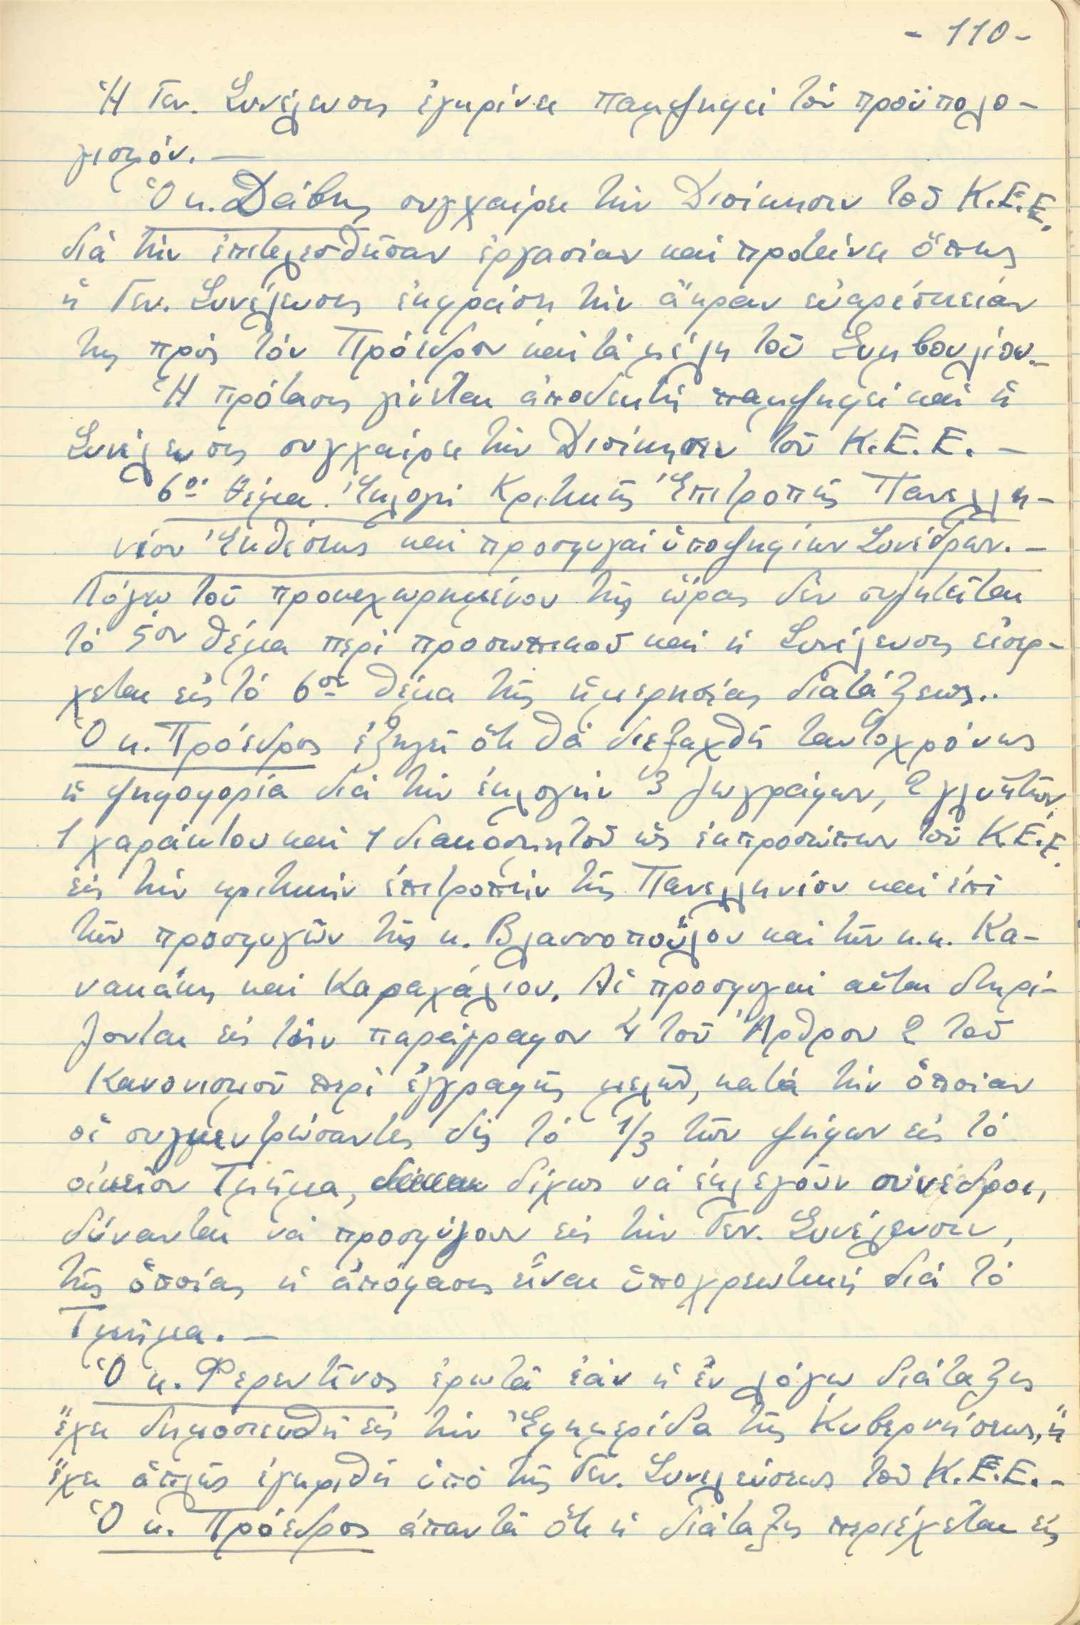 - 110 -
Ἡ Γεν. Συνέλευσις ἐγκρίνει παμψηφεί τόν προϋπολο-
γισμόν. —
Ὁ κ. Δάβης συγχαίρει τήν Διοίκησιν τοῦ Κ.Ε.Ε.
διά τήν ἐπιτελεσθεῖσαν ἐργασίαν καί προτείνει ὅπως
ἡ Γεν. Συνέλευσις ἐκφράσῃ τήν ἄκραν εὐαρέσκειάν
της πρός τόν Πρόεδρον καί τά μέλη τοῦ Συμβουλίου. -
Ἡ πρότασις γίνεται ἀποδεκτή παμψηφεί καί ἡ
Συνέλευσις συγχαίρει τήν Διοίκησιν τοῦ Κ.Ε.Ε. —
6ον θέμα. Ἐκλογή Κριτικῆς Ἐπιτροπῆς Πανελλη-
νίου Ἐκθέσεως καί προσφυγαί ὑποψηφίων Συνέδρων. —
Λόγῳ τοῦ προκεχωρημένου τῆς ὥρας δέν συζητεῖται
τό 5ον θέμα περί προσωπικοῦ καί ἡ Συνέλευσις εἰσέρ-
χεται εἰς τό 6ον θέμα τῆς ἡμερησίας διατάξεως..
Ὁ κ. Πρόεδρος ἐξηγεῖ ὅτι θά διεξαχθῇ ταυτοχρόνως
ἡ ψηφοφορία διά τήν ἐκλογήν 3 ζωγράφων, 2 γλυπτῶν,
1 χαράκτου καί 1 διακοσμητοῦ ὡς ἐκπροσώπων τοῦ Κ.Ε.Ε.
εἰς τήν κριτικήν ἐπιτροπήν τῆς Πανελληνίου καί ἐπί
τῶν προσφυγῶν τῆς κ. Βλασσοπούλου καί τῶν κ.κ. Κα-
νακάκη καί Καραχάλιου. Αἱ προσφυγαί αὗται στηρί-
ζονται εἰς τήν παράγραφον 4 τοῦ Ἄρθρου 2 τοῦ
Κανονισμοῦ περί ἐγγραφῆς μελῶν, κατά τήν ὁποίαν
οἱ συγκεντρώσαντες δίς τό 1/3 τῶν ψήφων εἰς τό
οἰκεῖον Τμῆμα, δίχως νά ἐκλεγοῦν σύνεδροι,
δύνανται νά προσφύγουν εἰς τήν Γεν. Συνέλευσιν,
τῆς ὁποίας ἡ ἀπόφασις εἶναι ὑποχρεωτική διά τό
Τμῆμα. —
Ὁ κ. Φερεντῖνος ἐρωτᾷ ἐάν ἡ ἐν λόγῳ διάταξις
ἔχει δημοσιευθῆ εἰς τήν Ἐφημερίδα τῆς Κυβερνήσεως, ἤ
ἔχει ἁπλῶς ἐγκριθῆ ὑπό τῆς Γεν. Συνελεύσεως τοῦ Κ.Ε.Ε. -
Ὁ κ. Πρόεδρος ἀπαντᾷ ὅτι ἡ διάταξις περιέχεται εἰς